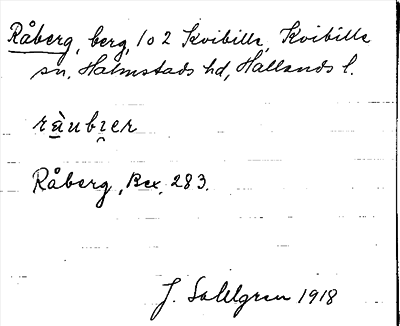 Råberg, berg, 1 o 2 Kvibille, Kvibille
sn, Halmstads hd, Hallands l.
ràubɪer
Råberg, Bex, 283.
J. Sahlgren 1918